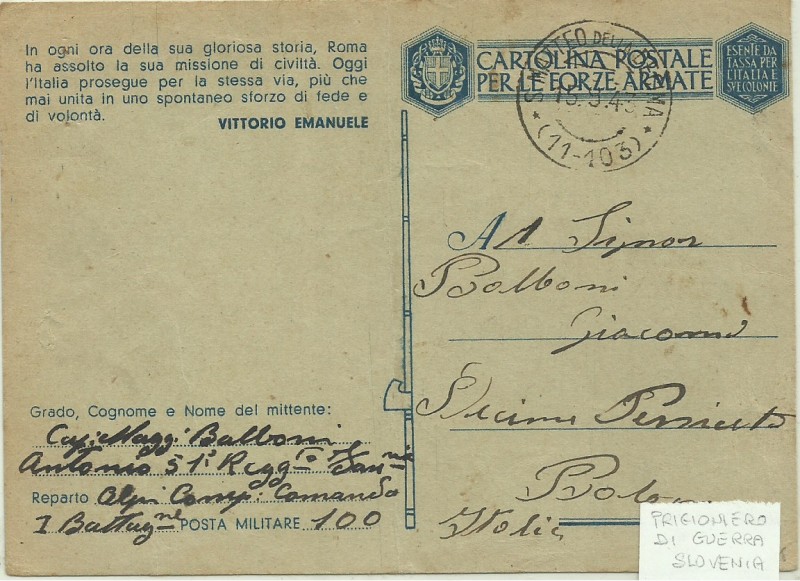 In ogni ora della sua gloriosa storia, Roma
ha assolto la sua missione di civiltà. Oggi
l'Italia prosegue per la stessa via, più che
mai unita in uno spontaneo sforzo di fede e
di volontà.
VITTORIO EMANUELE
CARTOLINA POSTALE
PER LE FORZE ARMATE
ESENTE DA
TASSA PER
L'ITALIA E
SUE COLONIE
S. MATTEO DELLA DECIMA
(11-103)
Al Signor
Balboni
Giacomo
Decima Persiceto
Italia
Grado, Cognome e Nome del mittente:
Cap: Magg: Balboni
Antonio 51°
Reparto Alpi Comp: Comando
I Battag.ne POSTA MILITARE 100
PRIGIONIERO
DI GUERRA
SLOVENIA